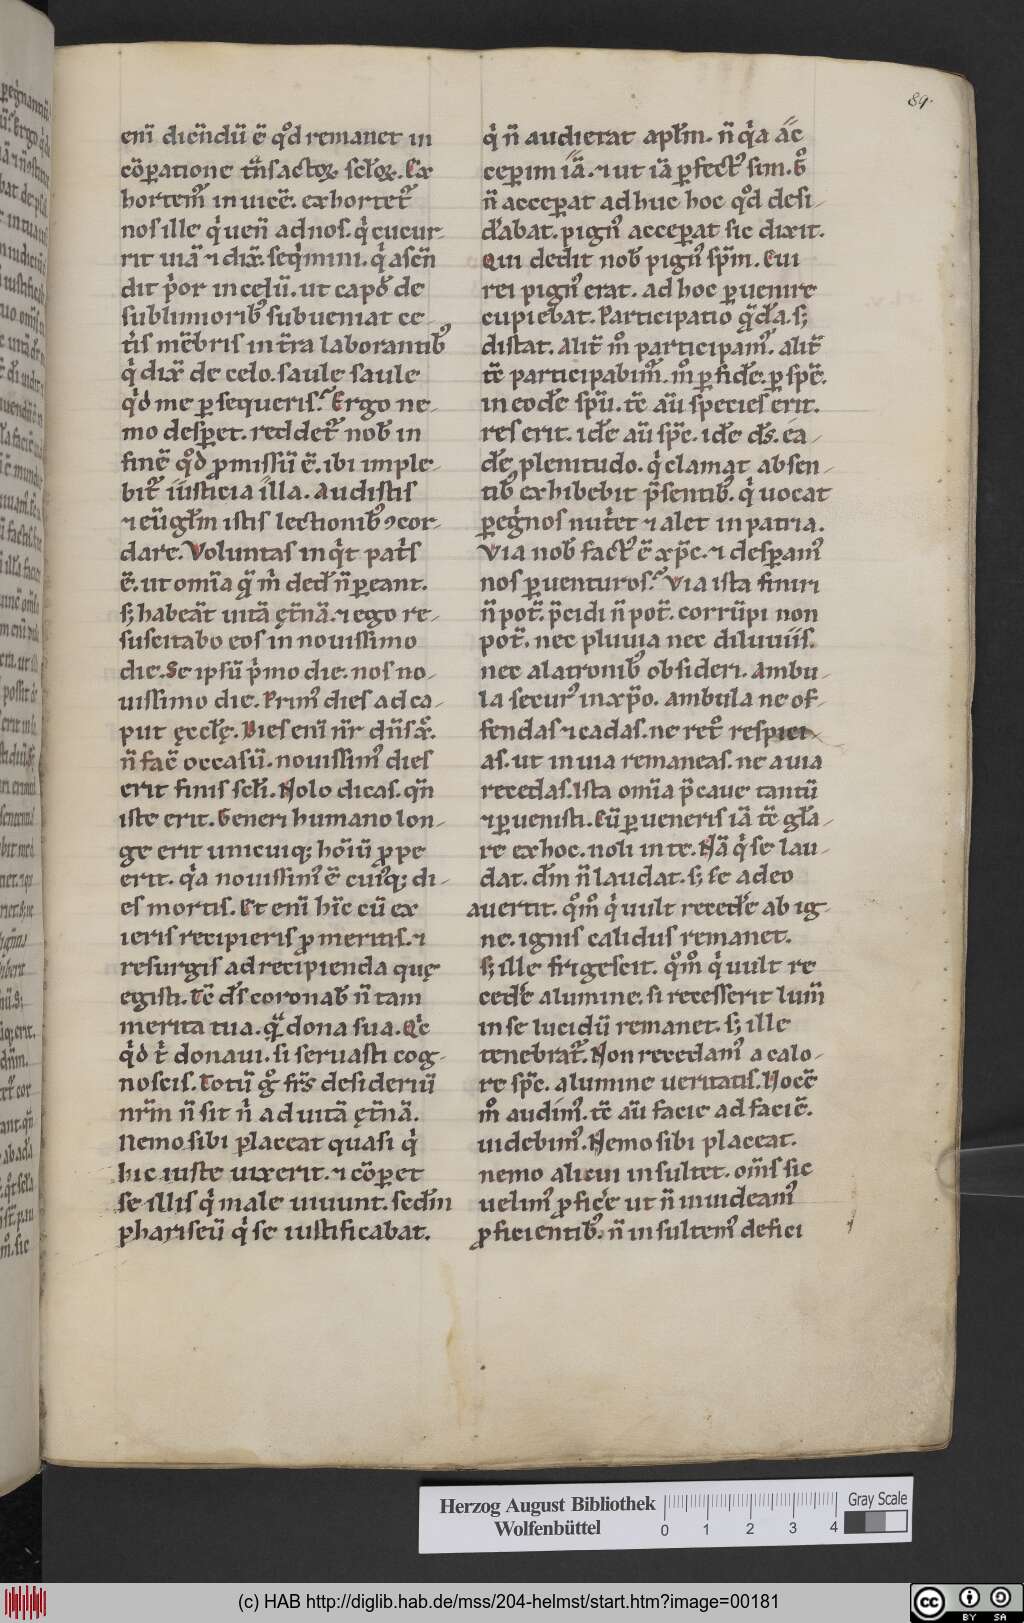 89.
enī dicēdū ē qd̓ remanet in
cōparatione trāsacto scło. Ex
hortem̓ in uicē. exhortet̓
nos ille q̇ ueñ ad nos. q̇ cucur-
rit uiā ⁊ dix̄. seq̇mini. q̇ ascē̄n
dit p̓or in celū. ut capd̓ de
sublimiorib̓ subueniat ce-
tis mēbris in t̄ra laborantib̓
q̇ dix̄ de celo. saule saule
q̇d me ꝑsequeris. Ergo ne-
mo desꝑet. reddet̓ nob̄ in
finē qd̓ ꝓmissū ē. ibi imple-
bit̓ iusticia illa. Audistis
⁊ eūgłm istis lectionib̓ ꝯcor-
dare. Voluntas inq̇t pat̓s
ē. ut om̄ia q̄ m̓ ded̄ n̄ ꝑeant.
s; habeāt uitā ęt̄nā. ⁊ ego re-
suscitabo eos in nouissimo
die. Se ipsū p̓mo die. nos no-
uissimo die. Prim̓ dies ad ca-
put ęccłę. Dies enī nr̄ dn̄s x̄.
n̄ faē occasū. nouissim̓ dies
erit finis scłi. Nolo dicas. qn̄
iste erit. Generi humano lon-
ge erit unicuiq; hōiū ꝓpe
erit. q̇a nouissim̓ ē cui̓q; di-
es mortis. Et enī hīc cū ex
ieris recipieris ꝓ meritis. ⁊
resurgis ad recipienda quę
egisti. Tē ds̄ coronab̄ n̄ tam
merita tua. q̄ dona sua. Qc̓
q̇d t̓ donaui. si seruasti cog-
noscis. Totū g̊ frs̄ desideriū
nrm̄ n̄ sit n̓ ad uitā ęt̄nā.
Nemo sibi placeat quasi q̇
hic iuste uixerit. ⁊ cōꝑet
se illis q̇ male uiuunt. sedm̄
phariseū q̇ se iustificabat.
q̇ n̄ audierat apłm. n̄ q̇a ac
ceperim iā. ⁊ ut iā ꝑfect̓ sim. g̊
n̄ acceꝑat adhuc hoc qd̓ desi-
d̓abat. pign̓ acceꝑat sic dixit.
Qui dedit nob̄ pign̓ spm̄. Cui
rei pign̓ erat. ad hoc ꝑuenire
cupiebat. Participatio q̄da. s;
distat. alit̄ m̊ participam̓. alit̄
tē participabim̓. m̊ ꝑ fidē. ꝑ spē.
in eodē spū. tē aū species erit.
res erit. idē aū spc̄. idē ds̄. ea-
dē plenitudo. q̇ clamat absen-
tib̓ exhibebit p̄sentib̓. q̇ uocat
ꝑeg̓nos nut̓et ⁊ alet in patria.
Via nob̄ fact̓ ē xpc̄. ⁊ desꝑam̓
nos ꝑuenturos. Via ista finiri
n̄ pot̄. p̄cidi n̄ pot̄. corrūpi non
pot̄. nec pluuia nec diluuiis.
nec a latronib̓ obsideri. Ambu-
la secur̓ in xpo̓. ambula ne of-
fendas ⁊ cadas. ne ret̊ respici-
as. ut in uia remaneas. ne a uia
recedas. Ista om̄ia p̄caue tantū
⁊ ꝑuenisti. Cū ꝑueneris iā tē głia-
re ex hoc. noli in te. Nā q̇ se lau-
dat. dm̄ n̄ laudat. s; se a deo
auertit. qm̊ q̇ uult recedē ab ig-
ne. ignis calidus remanet.
s; ille frigescit. qm̊ q̇ uult re
cedē a lumine. si recesserit lum̄
in se lucidū remanet. s; ille
tenebrat̓. Non recedam̓ a calo-
re spc̄. a lumine ueritatis. Nocē
m̊ audim̓. tē aū facie ad faciē.
uidebim̓. Nemo sibi placeat.
nemo alicui insultet. om̄s sic
uelim̓ ꝓficē ut n̄ inuideam̓
ꝓficientib̓. n̄ insultem̓ defici
Herzog August Bibliothek
Wolfenbüttel
0 1 2 3 4
Gray Scale
(c) HAB http://diglib.hab.de/mss/204-helmst/start.htm?image=00181
cc BY SA